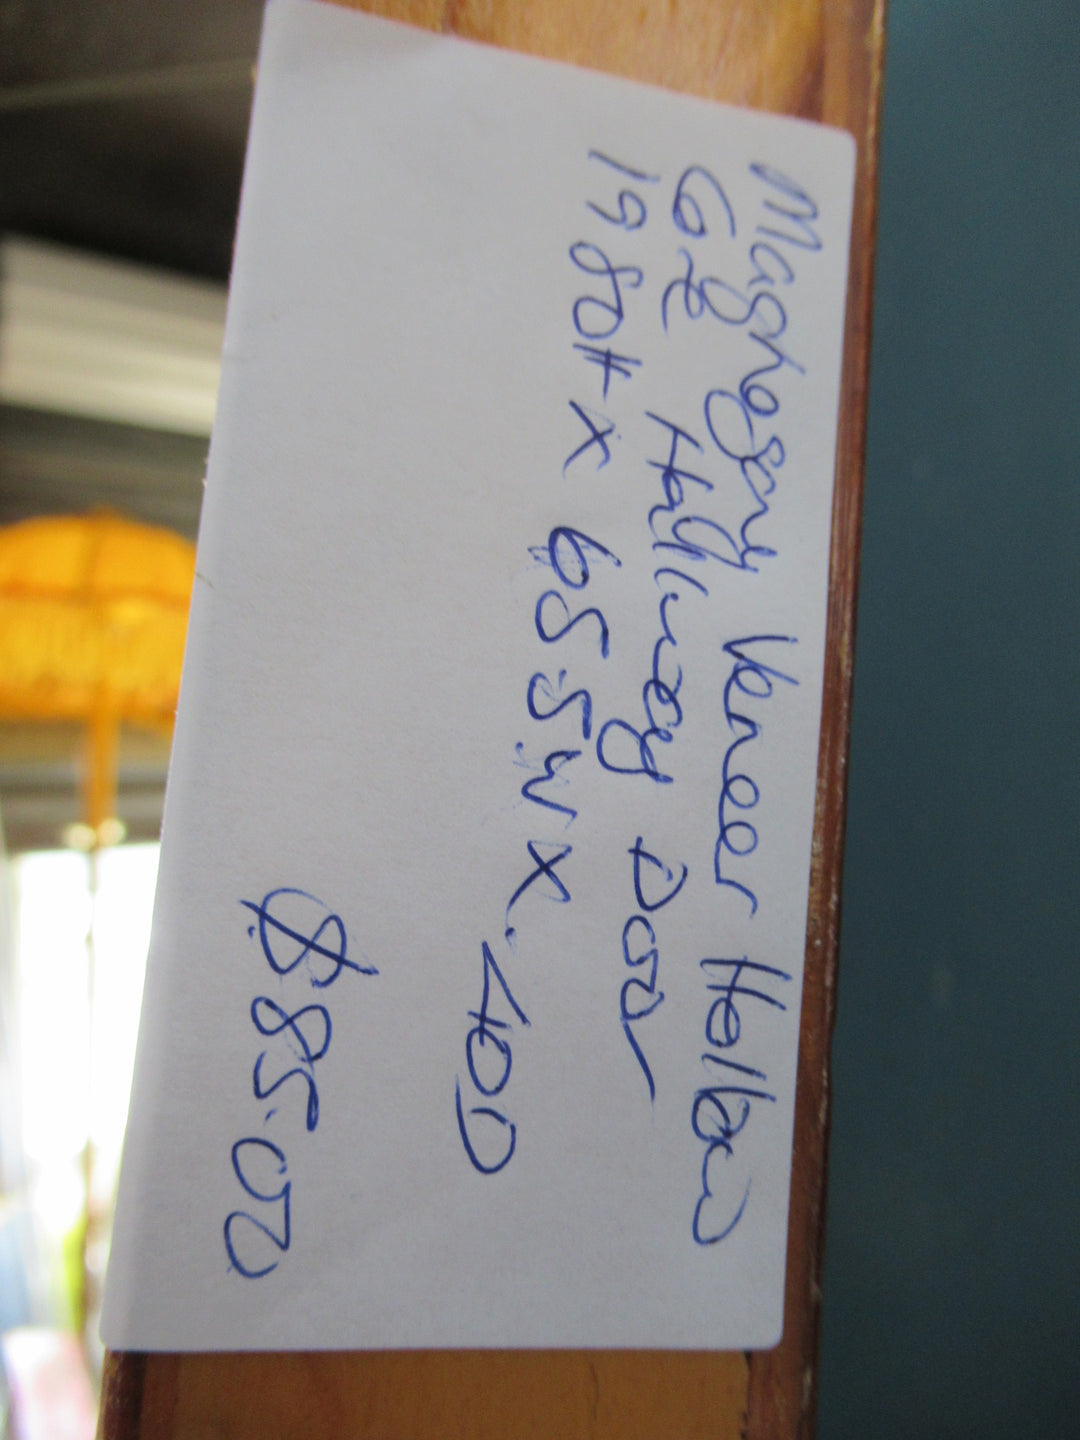 Maghogany Veneer Hollow
Core Hallway Door
1980H x 655W x 40D
$85.00